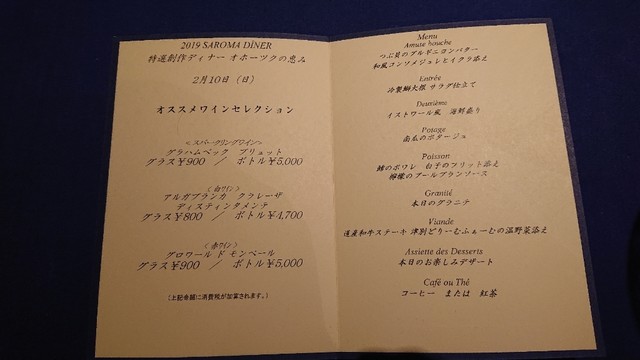 2019 SAROMA DINER
特選創作ディナー オホーツクの恵み
2月10日（日）
オススメワインセレクション
＜スパークリングワイン＞
グラハムベック ブリュット
グラス￥900 ／ ボトル￥5,000
＜白ワイン＞
アルガブランカ クラレーザ
ディスティンタメンテ
グラス￥800 ／ ボトル￥4,700
＜赤ワイン＞
グロワール ド モンペール
グラス￥900 ／ ボトル￥5,000
（上記金額に消費税が加算されます。）
Menu
Amuse bouche
つぶ貝のブルギニョンバター
和風コンソメジュレとイクラ添え
Entrée
冷製鰤大根 サラダ仕立て
Deuxième
イストワール風 海鮮盛り
Potage
南瓜のポタージュ
Poisson
鱈のポワレ 白子のフリット添え
檸檬のブールブランソース
Granité
本日のグラニテ
Viande
道産和牛ステーキ 津別どりーむふぁーむの温野菜添え
Assiette des Desserts
本日のお楽しみデザート
Café ou Thé
コーヒー または 紅茶